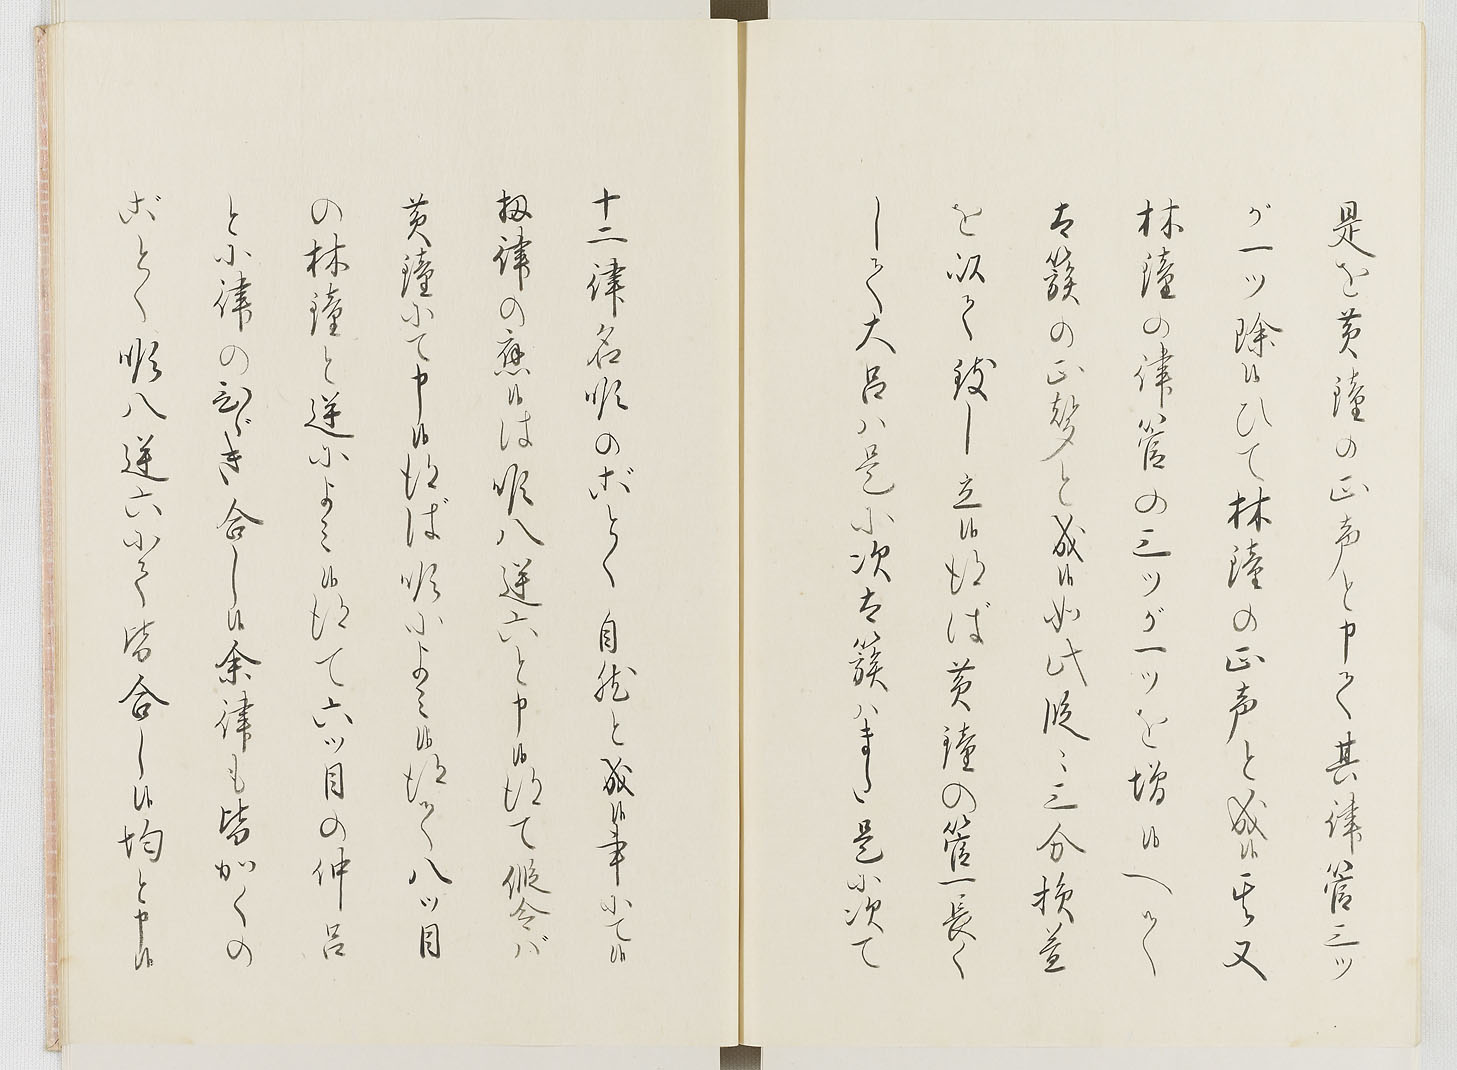 是を黄鐘の正声と申て其律管三ツ
が一ツ除候ひて林鐘の正声と成候其又
林鐘の律管の三ツが一ツを増候へて
太簇の正聲と成候如此段々三分損益
を以て致し立候得ば黄鐘の管一長く
して大呂ハ是に次太簇ハまた是に次て
十二律名順のごとく自然と成候事にて候
扨律の應候は順八逆六と申候得て假令バ
黄鐘にて申候得ば順によミ候得て八ツ目
の林鐘と逆によミ候得て六ツ目の仲呂
と小律のひゞき合し候余律も皆かくの
ごとく順八逆六にて皆合し候均と申候